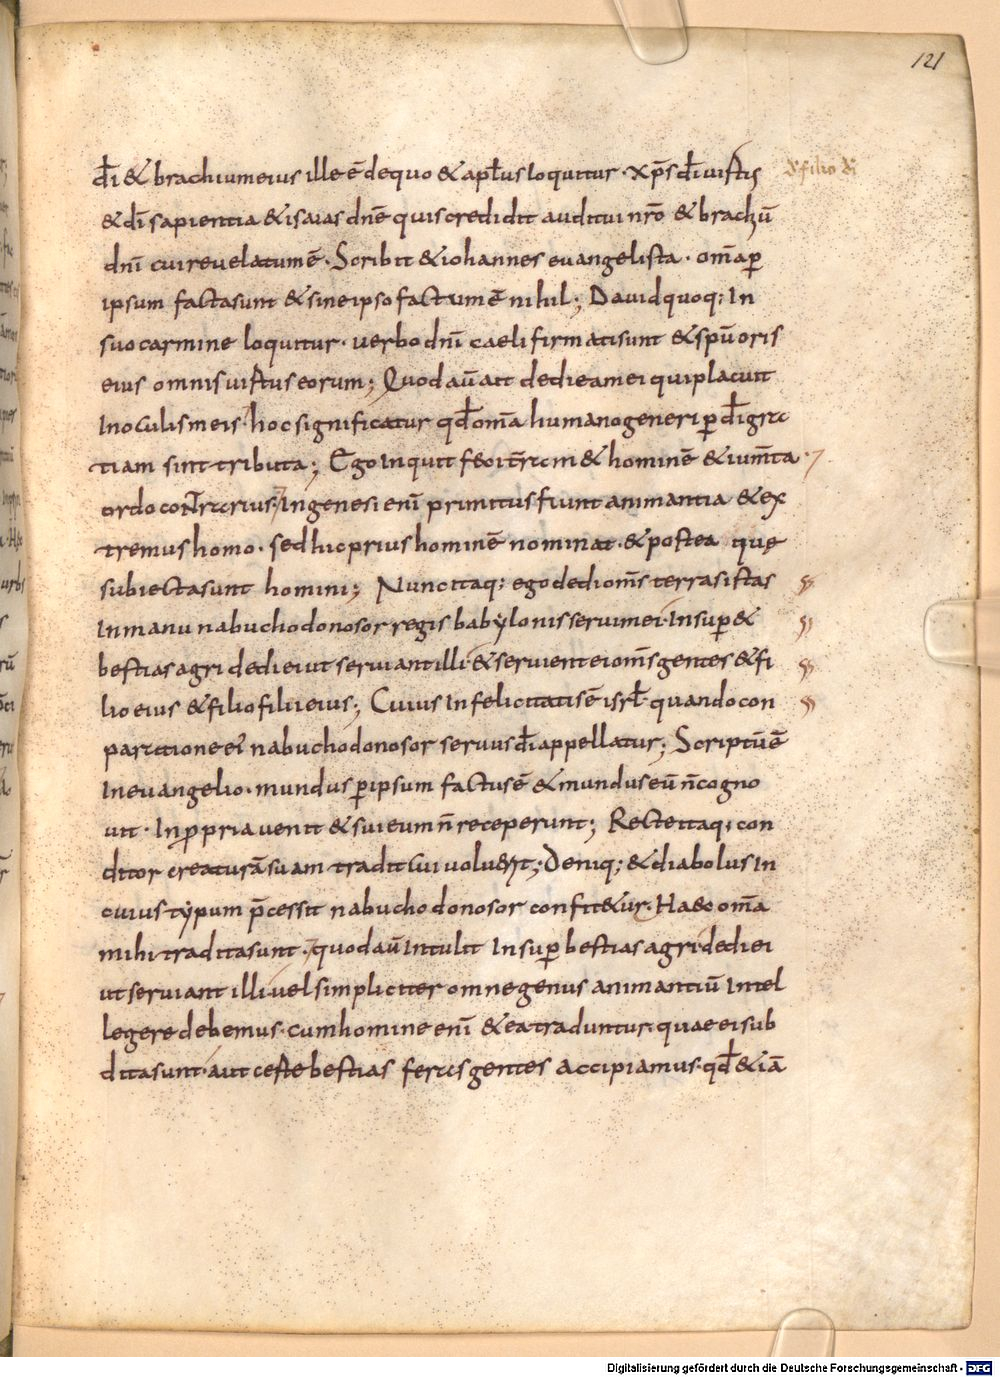 121
dī & brachium eius ille ē de quo & aplus loquitur · xp̄s dī uirtus
& dī sapientia & isaias dnē quis credidit auditui nr̄o & brachiū
dnī cui reuelatum ē · Scribit & iohannes euangelista · om̄a ꝑ
ipsum facta sunt & sine ipso factum ē nihil; Dauid quoq; In
suo carmine loquitur · uerbo dnī caeli firmati sunt & spū oris
eius omnis uirtus eorum; Quod aū ait dedi eam ei qui placuit
In oculis meis · hoc significatur qđ om̄a humano generi ꝑ dī gra
tiam sint tributa; Ego Inquit feci t̄ram & hominē & ium̄ta ·
ordo contrarius · In genesi enī primitus fiunt animantia & ex
tremus homo · sed hic prius hominē nominat · & postea quę
subiecta sunt homini; Nunc itaq; ego dedi om̄s terras istas
In manu nabuchodonosor regis babylonis serui mei · Insuꝑ &
bestias agri dedi ei ut seruiant illi · & seruient ei om̄s gentes & fi
lio eius & filio filii eius; Cuius Infelicitatis ē isrl̄ quando con
paratione ei' nabuchodonosor seruus dī appellatur; Scriptū ē
In euangelio · mundus ꝑ ipsum factus ē & mundus eū n̄ cogno
uit · In ꝓpria uenit & sui eum n̄ receperunt; Recte itaq; con
ditor creaturā suam tradit cui uoluerit; Deniq; & diabolus In
cuius typum p̄cessit nabuchodonosor confit&ur · Haec om̄a
mihi tradita sunt · quod aū Intulit Insuꝑ bestias agri dedi ei
ut seruiant illi · uel simpliciter omne genus animantiū Intel
legere debemus · cum homine enī & ea traduntur · quae ei sub
dita sunt · aut certe bestias feras gentes accipiamus · qđ & iā
Digitalisierung gefördert durch die Deutsche Forschungsgemeinschaft - DFG